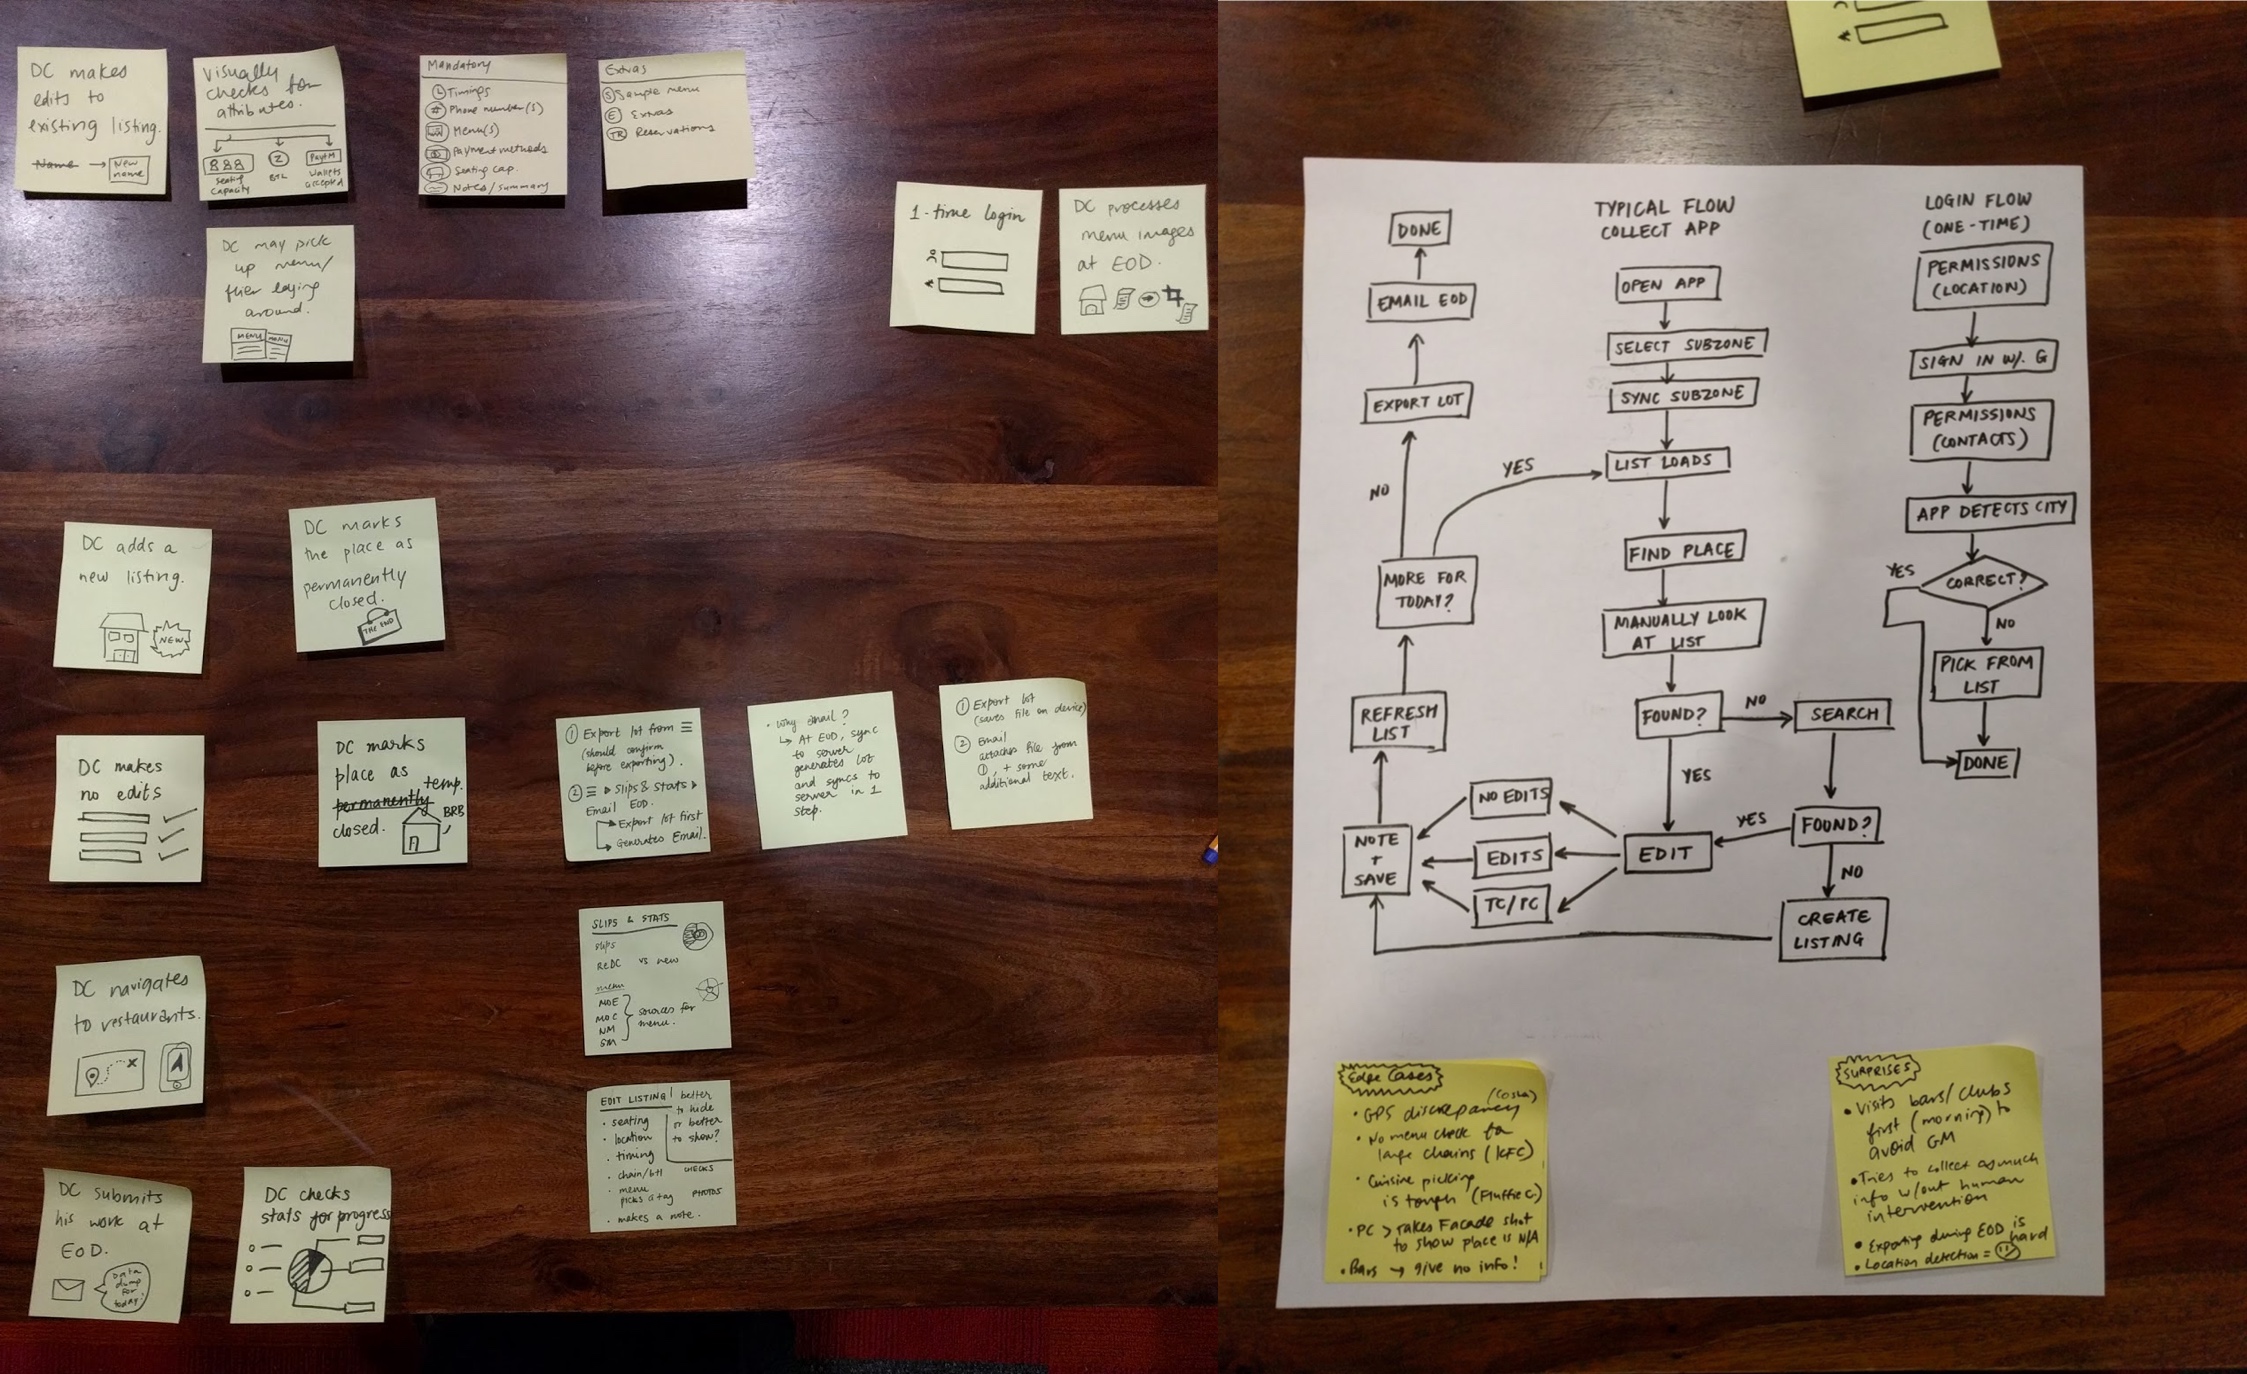 DC makes
edits to
existing listing.
Name → New
name
Visually
checks for
attributes.
Seating
Capacity
Z
BTL
Paytm
Wallets
accepted
Mandatory
Timings
# Phone number(s)
Menu(s)
Payment methods
Seating cap.
Notes/summary
Extras
S Sample menu
E Extras
TR Reservations
DC may pick
up menu/
flier laying
around.
MENU
MENU
1-time login
DC processes
menu images
at EOD.
DC adds a
new listing.
NEW
DC marks
the place as
permanently
closed.
THE END
DC makes
no edits
DC marks
place as
permanently temp.
closed.
BRB
① Export lot from ≡
(should confirm
before exporting).
② ≡ ▸ Slips & Stats ▸
Email EOD.
→ Export lot first
→ Generates Email.
• Why email?
↳ At EOD, sync
to server
generates lot
and syncs to
server in 1
step.
① Export lot
(saves file on device)
② Email
attaches file from
①, + some
additional text.
SLIPS & STATS
slips
ReDC vs new
menu
MOE
MOC
NM
SM
sources for
menu.
DC navigates
to restaurants.
EDIT LISTING
• seating
• location
• timing
• chain/btl
• menu
picks a tag
• makes a note.
better
to hide
or better
to show?
CHECKS
PHOTOS
DC submits
his work at
EOD.
Data
dump for
today!
DC checks
stats for progress
TYPICAL FLOW
COLLECT APP
OPEN APP
SELECT SUBZONE
SYNC SUBZONE
LIST LOADS
FIND PLACE
MANUALLY LOOK
AT LIST
FOUND?
NO
SEARCH
YES
FOUND?
YES
NO
EDIT
CREATE
LISTING
NO EDITS
EDITS
TC/PC
NOTE
+
SAVE
REFRESH
LIST
MORE FOR
TODAY?
YES
NO
EXPORT LOT
EMAIL EOD
DONE
LOGIN FLOW
(ONE-TIME)
PERMISSIONS
(LOCATION)
SIGN IN W/. G
PERMISSIONS
(CONTACTS)
APP DETECTS CITY
CORRECT?
YES
NO
PICK FROM
LIST
DONE
Edge Cases
• GPS discrepancy (Costa)
• No menu check for
large chains (KFC)
• Cuisine picking
is tough
• PC > Takes Facade shot
to show place is N/A
• Bars → give no info!
SURPRISES
• Visits bars/clubs
first (morning) to
avoid GM
• Tries to collect as much
info w/out human
intervention
• Exporting during EOD is
hard
• Location detection =